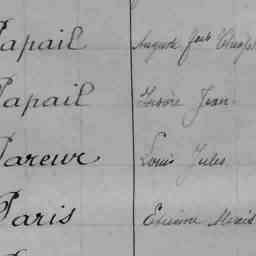 Papail Auguste
Papail Isidore Jean
Pareux Louis Jules
Paris Etienne Alexis